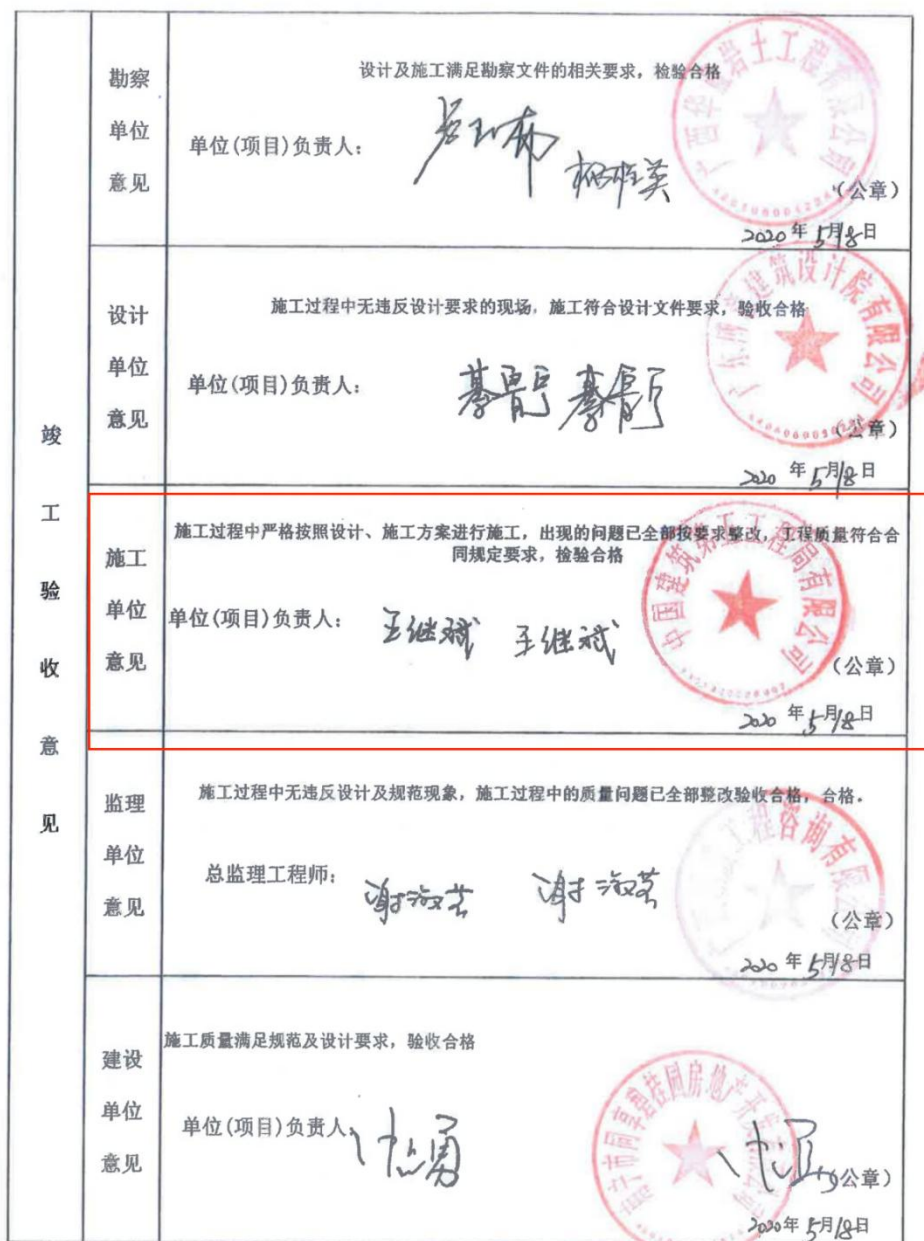 竣工验收意见
勘察单位意见
设计及施工满足勘察文件的相关要求，检验合格
单位(项目)负责人：
(公章)
2020年5月18日
设计单位意见
施工过程中无违反设计要求的现场，施工符合设计文件要求，验收合格
单位(项目)负责人：
(公章)
2020年5月18日
施工单位意见
施工过程中严格按照设计、施工方案进行施工，出现的问题已全部按要求整改，工程质量符合合
同规定要求，检验合格
单位(项目)负责人：
王继斌 王继斌
(公章)
2020年5月18日
监理单位意见
施工过程中无违反设计及规范现象，施工过程中的质量问题已全部整改验收合格，合格．
总监理工程师：
(公章)
2020年5月18日
建设单位意见
施工质量满足规范及设计要求，验收合格
单位(项目)负责人
(公章)
2020年5月18日